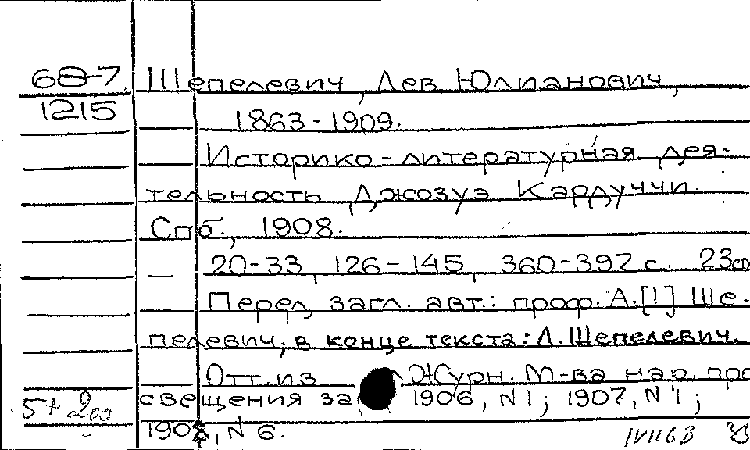 68-7
1215
Шепелевич, Лев Юлианович,
1863-1909.
Историко-литературная дея-
тельность Джозуэ Кардуччи.
Спб, 1908.
20-33, 126-145, 360-392 с. 23см
Перед загл. авт.: проф. А.[!] Ше-
пелевич; в конце текста: Л. Шепелевич.
Отт. из Журн. М-ва нар. про
свещения за 1906, N1; 1907, N1;
1908, N 6.
5+2